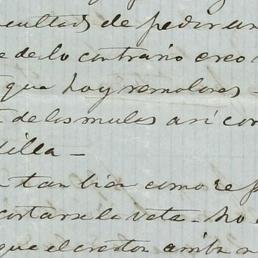 cultad de pedir un
de lo contrario creo
que hoy remolores -
de los mulas asi con
silla -
tan bien como re
cortarse la veta - No
que el creston arriba